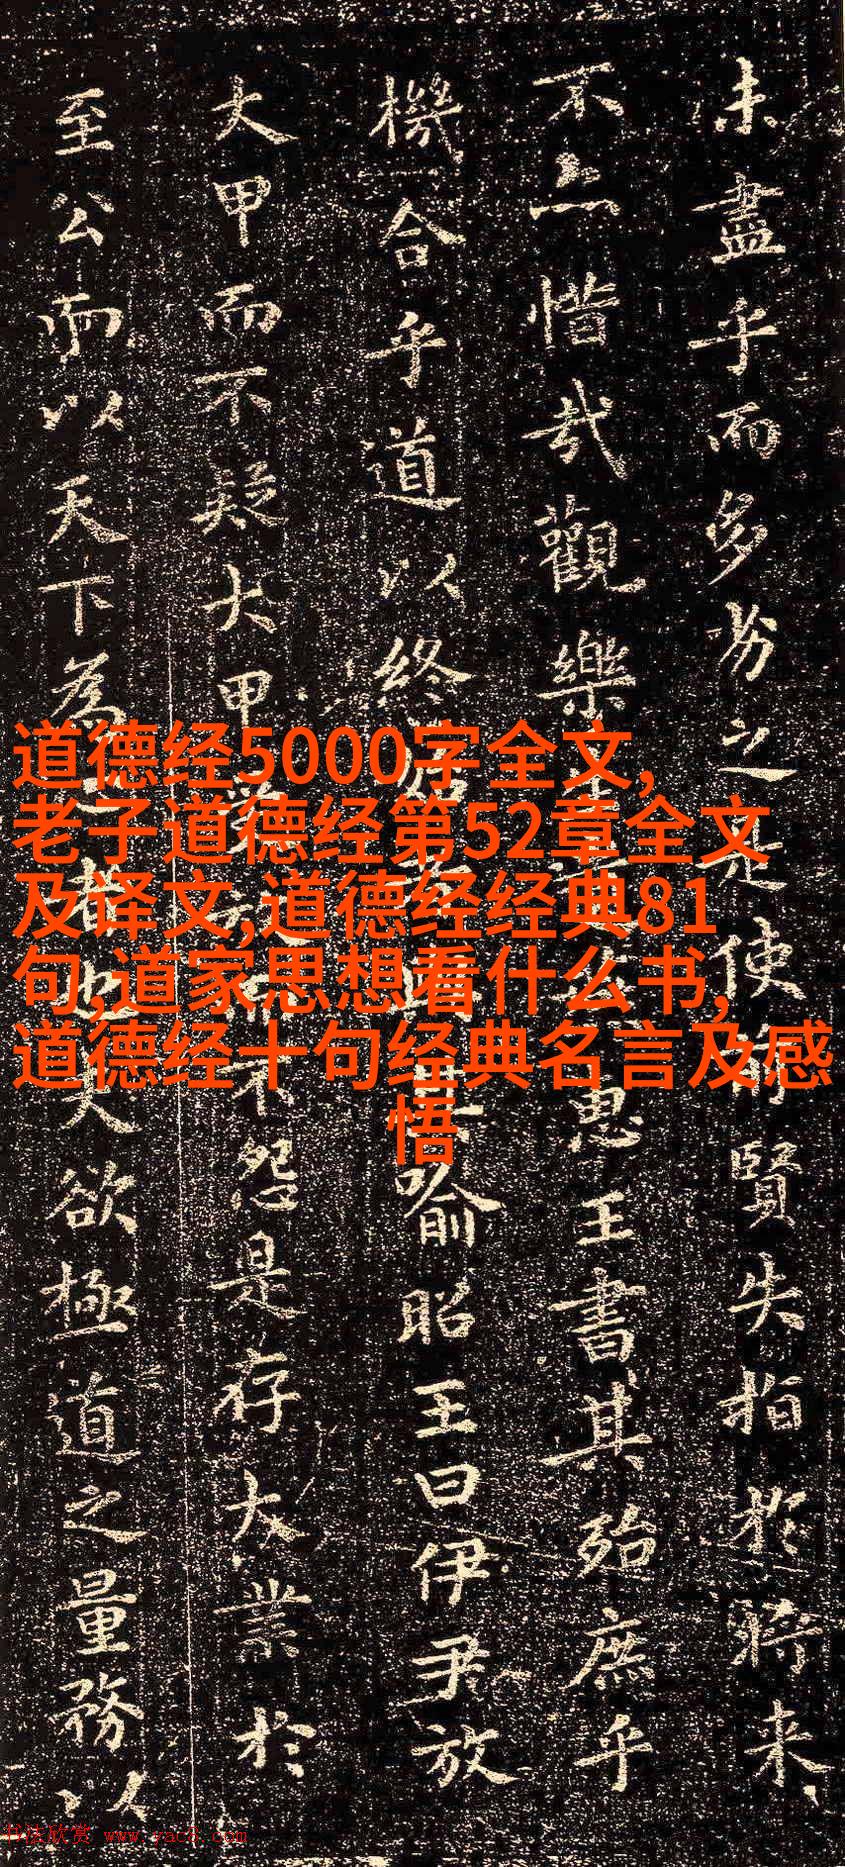 未盡乎而多劣之是使賢失指於將来
不亦惜哉觀樂惠王書其殆庶乎
機合乎道以終始喻昭王曰伊尹放
大甲而不疑大甲不怨是存大業於
至公而以天下為者也夫欲極道之量務以
道德经5000字全文,
老子道德经第52章全文
及译文,道德经经典81
句,道家思想看什么书,
道德经十句经典名言及感
悟
书法欣赏 www.yac8.com